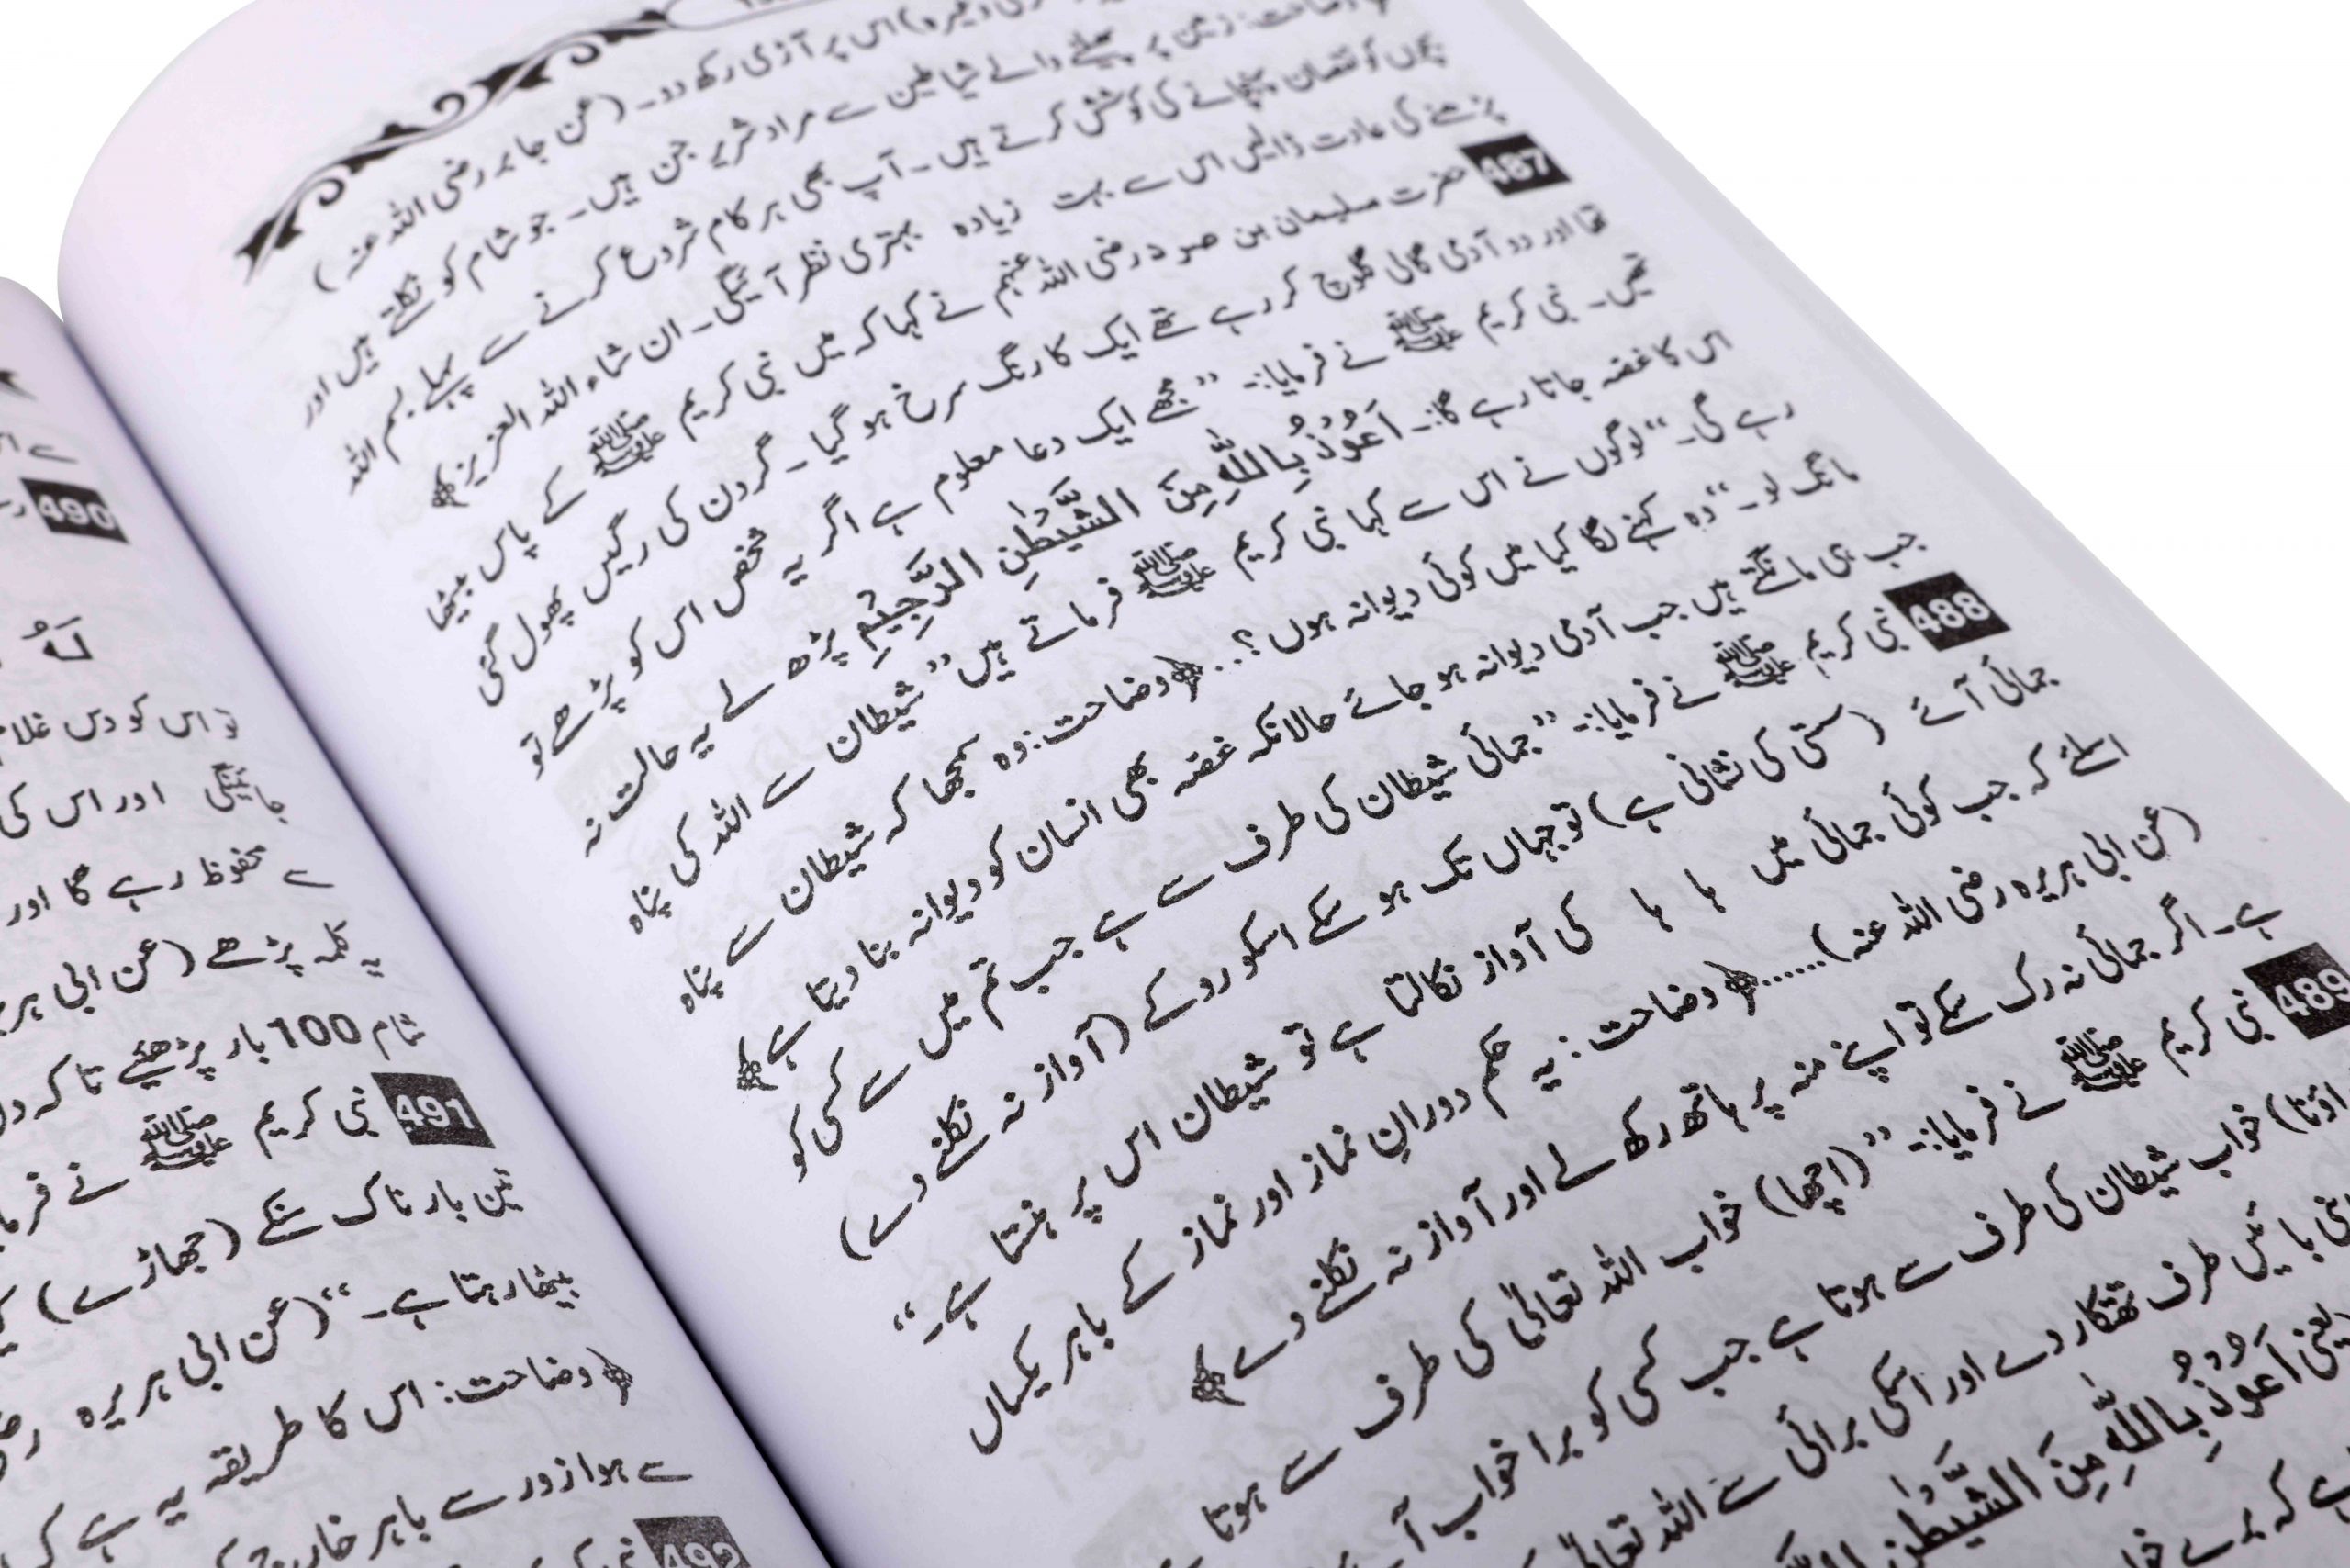 اس پر آڑی رکھ دو۔ (عن جابر رضی اللہ عنہ)
وضاحت: زمین پر پھیلنے والے شیاطین سے مراد شریر جن ہیں۔ جو شام کو نکلتے ہیں اور
بچوں کو نقصان پہنچانے کی کوشش کرتے ہیں۔ آپ بھی ہر کام شروع کرنے سے پہلے بسم اللہ
پڑھنے کی عادت ڈالیں اس سے بہت زیادہ بہتری نظر آئیگی۔ ان شاء اللہ العزیز﴾
487 حضرت سلیمان بن صرد رضی اللہ عنہم نے کہا کہ میں نبی کریم ﷺ کے پاس بیٹھا
تھا اور دو آدمی گالی گلوچ کر رہے تھے ایک کا رنگ سرخ ہو گیا۔ گردن کی رگیں پھول گئی
تھیں۔ نبی کریم ﷺ نے فرمایا:۔ "مجھے ایک دعا معلوم ہے اگر یہ شخص اس کو پڑھے تو
اس کا غصہ جاتا رہے گا:۔ اَعُوْذُ بِاللّٰهِ مِنَ الشَّيْطٰنِ الرَّجِيْمِ پڑھ لے یہ حالت نہ
رہے گی۔" لوگوں نے اس سے کہا نبی کریم ﷺ فرماتے ہیں "شیطان سے اللہ کی پناہ
مانگ لو۔" وہ کہنے لگا کیا میں کوئی دیوانہ ہوں؟..﴿وضاحت: وہ سمجھا کہ شیطان سے پناہ
جب ہی مانگتے ہیں جب آدمی دیوانہ ہو جائے حالانکہ غصہ بھی انسان کو دیوانہ بنا دیتا ہے﴾
488 نبی کریم ﷺ نے فرمایا:۔ "جمائی شیطان کی طرف سے ہے جب تم میں سے کسی کو
جمائی آئے (سستی کی نشانی ہے) تو جہاں تک ہو سکے اسکو روکے (آواز نہ نکلنے دے)
اسلئے کہ جب کوئی جمائی میں ہا ہا کی آواز نکالتا ہے تو شیطان اس پر ہنستا ہے۔"
(عن ابی ہریرہ رضی اللہ عنہ)......﴿وضاحت: یہ حکم دورانِ نماز اور نماز کے باہر یکساں
ہے۔ اگر جمائی نہ رک سکے تو اپنے منہ پر ہاتھ رکھ لے اور آواز نہ نکلنے دے﴾
489 نبی کریم ﷺ نے فرمایا:۔ "(اچھا) خواب اللہ تعالیٰ کی طرف سے ہوتا
خواب شیطان کی طرف سے ہوتا ہے جب کسی کو برا خواب
بائیں طرف تھتکار دے اور اسکی برائی سے اللہ تعالیٰ
یعنی اَعُوْذُ بِاللّٰهِ مِنَ الشَّيْطٰنِ
ہے کہ برے
490
لَهُ
تو اس کو دس غلام
جائینگی اور اس کی
سے محفوظ رہے گا اور
یہ کلمہ پڑھے (عن ابی
شام 100 بار پڑھیئے تاکہ
491 نبی کریم ﷺ نے
تین بار ناک سنکے (جھاڑے)
بیٹھا رہتا ہے۔" (عن ابی ہریرہ
﴿وضاحت: اس کا طریقہ یہ ہے
سے ہوا زور سے باہر
492